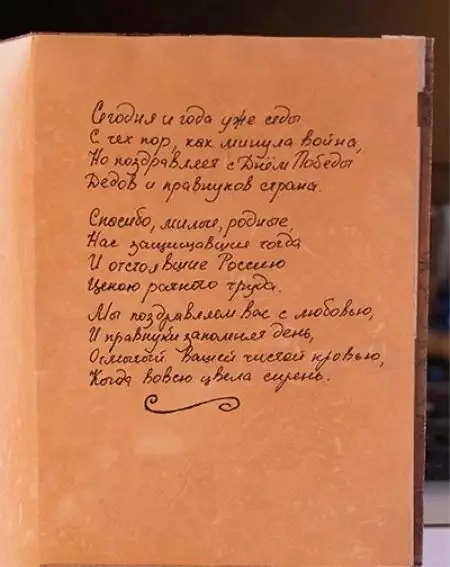 Сегодня и года уже седы
С тех пор, как минула война,
Но поздравляет с Днём Победы
Дедов и правнуков страна.
Спасибо, милые, родные,
Нас защищавшие тогда
И отстоявшие Россию
Ценою ратного труда.
Мы поздравляем вас с любовью,
И правнуки запомнят день,
Омытый вашей чистой кровью,
Когда вовсю цвела сирень.